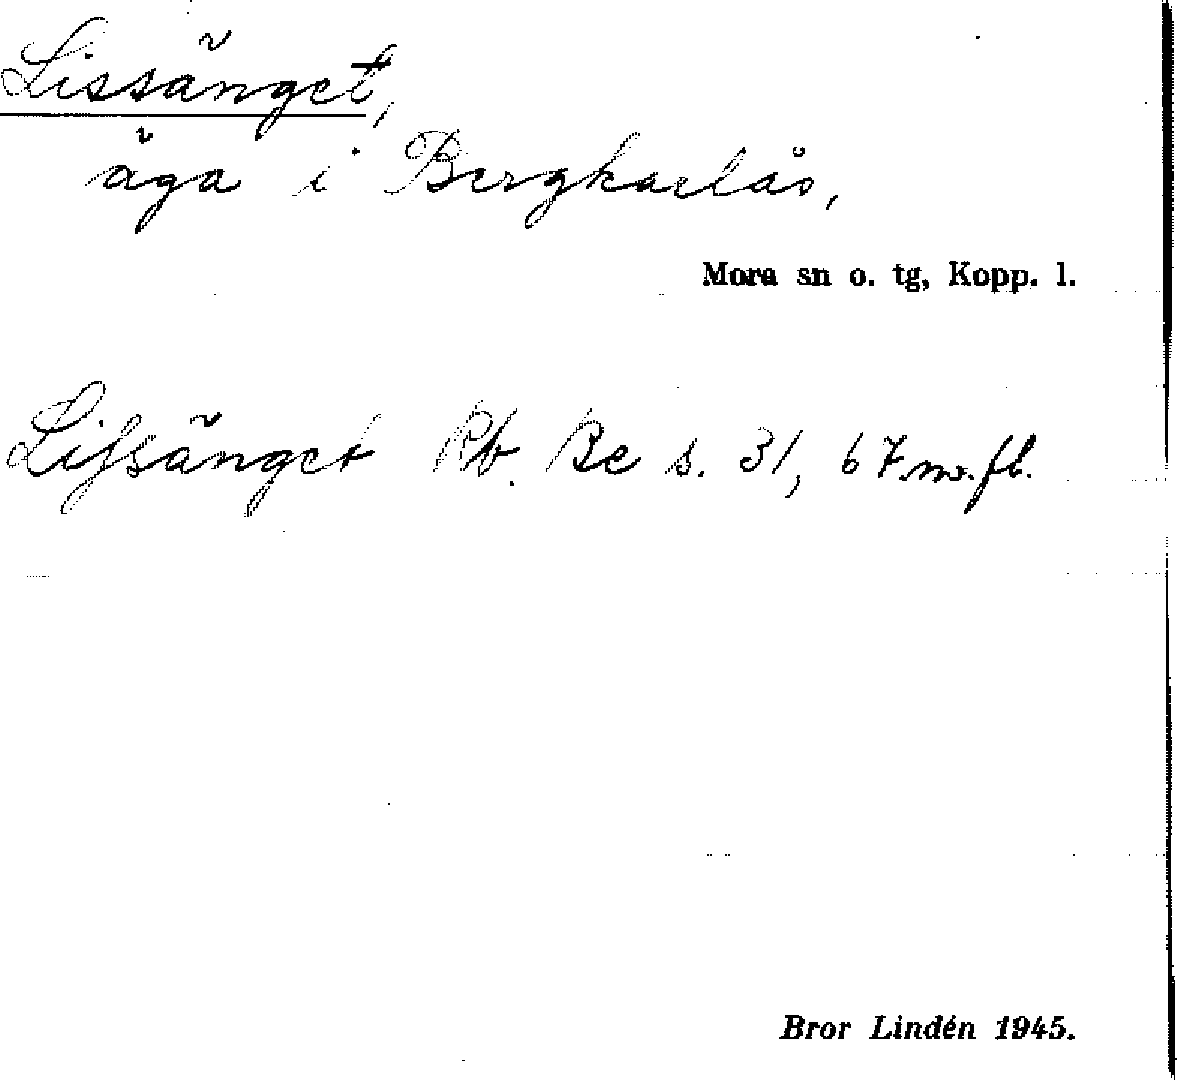 Lissänget,
äga i Bergkarlås,
Mora sn o. tg, Kopp. l.
Lissänget Rb. Be s. 31, 67 m. fl.
Bror Lindén 1945.